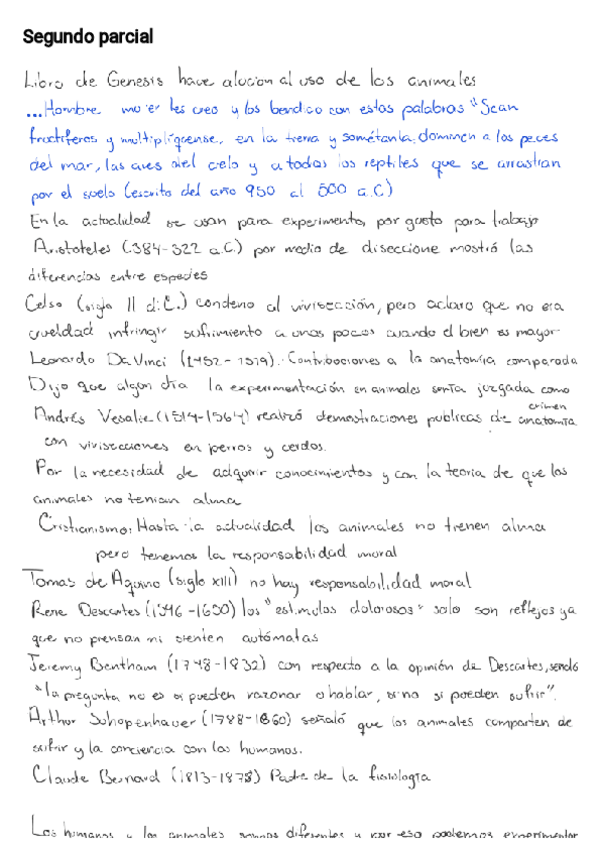 Segundo parcial
Libro de Genesis hace alucion al uso de los animales
...Hombre mujer les creo y los bendico con estas palabras "Sean
fructiferos y multipliquense, en la tierra y sométanla, dominen a los peces
del mar, las aves del cielo y a todos los reptiles que se arrastran
por el suelo (escrito del año 950 al 500 a.C)
En la actualidad se usan para experimento, por gusto para trabajo
Aristoteles (384-322 a.C.) por medio de diseccione mostró las
diferencias entre especies
Celso (siglo II d.C.) condeno al vivisección, pero aclaro que no era
crueldad infringir sufrimiento a unos pocos cuando el bien es mayor
Leonardo Da Vinci (1452-1519). Contribociones a la anatomia comparada
Dijo que algun dia la experimentación en animales seria juzgada como
crimen
Andrés Vesalie (1514-1564) realizó demostraciones publicas de anatomia
con vivisecciones en perros y cerdos.
Por la necesidad de adquirir conocimientos y con la teoria de que los
animales no tenian alma
Cristianismo: Hasta la actualidad los animales no tienen alma
pero tenemos la responsabilidad moral
Tomas de Aquino (siglo XIII) no hay responsabilidad moral
Rene Descartes (1596-1650) los "estimulos dolorosos" solo son reflejos ya
que no piensan ni sienten autómatas
Jeremy Bentham (1748-1832) con respecto a la opinión de Descartes, señalo
"la pregunta no es si pueden razonar o hablar, sino si pueden sufrir".
Arthur Schopenhauer (1788-1860) señaló que los animales comparten de
sufrir y la conciencia con los humanos.
Claude Bernard (1813-1878) Padre de la fisiologia
Los humanos y los animales somos diferentes y por eso podemos experimentar